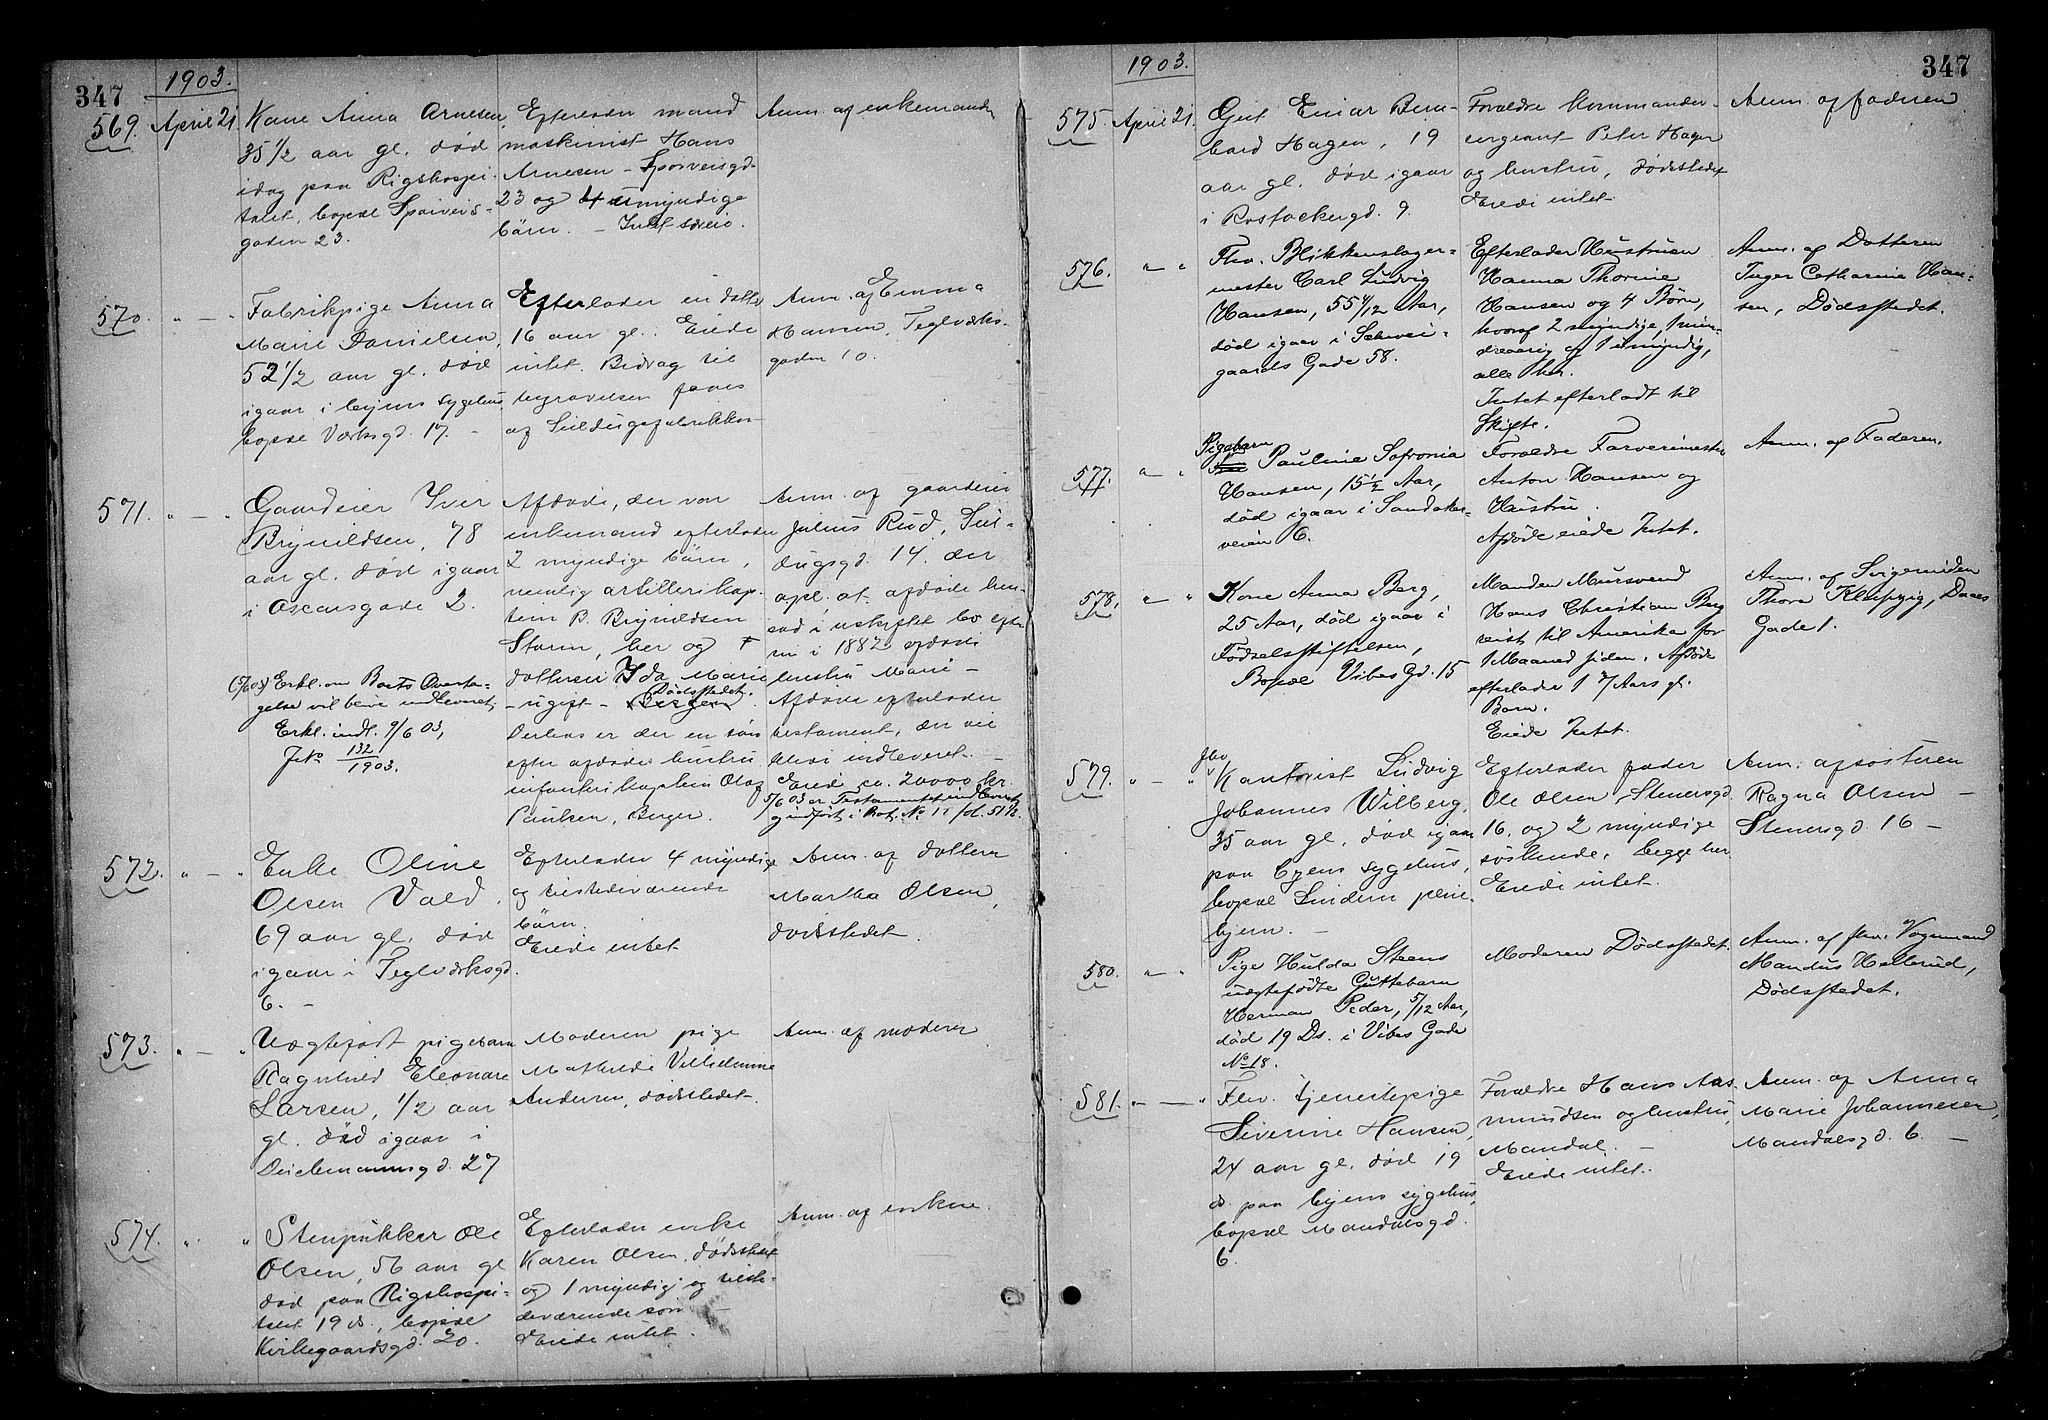 347
1903.
569. April 21
Kone Anna Arnesen,
35 1/2 aar gl. død
idag paa Rigshospi-
talet, bopæl Sporveis-
gaden 23.
Efterlader mand
maskinist Hans
Arnesen - Sporveisgd.
23 og 4 umyndige
børn. - Intet særeie.
Anm. af enkemanden
570. " — "
Fabrikpige Anna
Marie Danielsen,
52 1/2 aar gl. død
igaar i byens sygehus,
bopæl Værksgd. 17. -
Efterlader en datter
16 aar gl. Eiede
intet. Bidrag til
begravelsen faaes
af Seildugsfabrikken
Anm. af Emma
Hansen, Teglværks-
gaden 10.
571. " — "
Gaardeier Iver
Brynildsen, 78
aar gl. død igaar
i Oscarsgade 2.
Erkl. om Boets Overta-
gelse vil blive indleveret.
Erkl. indl. 9/6 03,
Jno 132/1903.
Afdøde, der var
enkemand efterlader
2 myndige børn,
nemlig artillerikap-
tein P. Brynildsen
Storm, her og
datteren Ida Marie
- ugift - Dødsstedet.
Desuden er der en søn
efter afdødes hustru
infanterikaptein Olaf
Paulsen, Berger.
Anm. af gaardeier
Julius Rud, Seil-
dugsgd. 14. der
opl. at afdøde hen-
sad i uskiftet bo efter
sin i 1882 afdøde
hustru Marie -
Afdøde efterlader
testament, der vil
blive indleveret. -
Eiede ca. 20000 kr.
5/6 03 er Testamentet indleveret
og indført i Prot. No 11 fol. 51 1/2.
572. " — "
Enke Oline
Olsen Vald,
69 aar gl. død
igaar i Teglværksgd.
6. -
Efterlader 4 myndige
og tilstedeværende
børn.
Eiede intet
Anm. af datteren
Martha Olsen,
dødsstedet.
573. " — "
Uægtefødt pigebarn
Ragnhild Eleonore
Larsen, 1/2 aar
gl. død igaar i
Deichmannsgd. 27
Moderen pige
Mathilde Vilhelmine
Andersen, dødsstedet.
Anm. af moderen
574. " "
Stenpukker Ole
Olsen, 56 aar gl
død paa Rigshospi-
talet 19 ds., bopæl
Kirkegaardsgd. 20.
Efterlader enke
Karen Olsen, dødsstedet
og 1 myndig og tilste-
deværende søn -
Eiede intet.
Anm. af enken.
1903.
347
575. April 21.
Geit Einar Bern-
hard Hagen, 19
aar gl. død igaar
i Rostockergd. 9.
Forældre kommander-
sergeant Peter Hagen
og hustru, dødsstedet
Eiede intet.
Anm. af faderen
576. " — "
Fhv. Blikkenslager-
mester Carl Ludvig
Hansen, 55 4/12 Aar,
død igaar i Schwei-
gaards Gade 58.
Efterlader Hustruen
Hanna Thorine
Hansen og 4 Børn,
hvoraf 2 myndige, 1 min-
dreaarig og 1 umyndig,
alle her.
Intet efterladt til
Skifte.
Anm. af Datteren
Inger Catharina Han-
sen, Dødsstedet.
577. " — "
Pigebarn
Pauline Sofronia
Hansen, 15 1/2 Aar,
død igaar i Sandaker-
veien 6.
Forældre Farverimester
Anton Hansen og
Hustru.
Afdøde eiede Intet.
Anm. af Faderen.
578. " — "
Kone Anna Berg,
25 Aar, død igaar i
Fødselsstiftelsen,
Bopæl Vibes Gd. 15
Manden Mursvend
Hans Christian Berg
reist til Amerika for
1 Maaned siden. Afdøde
efterlader 1 7 Aars gl.
Barn.
Eiede Intet.
Anm. af Svigerinden
Thora Kleipzig, Daaes
Gade 1.
579. " — "
fhv.
Kantorist Ludvig
Johannes Wilberg,
35 aar gl. død igaar
paa byens sygehus,
bopæl Lindern pleie-
hjem. -
Efterlader fader
Ole Olsen, Stenersgd.
16, og 2 myndige
søskende, begge her
Eiede intet.
Anm. af søsteren
Ragna Olsen -
Stenersgd. 16 -
580. " — "
Pige Hulda Steens
uægtefødte Guttebarn
Herman Peder, 5/12 Aar,
død 19 Ds. i Vibes Gade
No 18.
Moderen Dødsstedet.
Anm. af fhv. Vognmand
Mandus Hellerud,
Dødsstedet.
581. " — "
Fhv. tjenestepige
Severine Hansen,
24 aar gl. død 19
ds. paa byens sygehus,
bopæl Mandalsgd.
6.
Forældre Hans Aas-
mundsen og hustru,
Mandal. -
Eiede intet.
Anm. af Anna
Marie Johannesen,
Mandalsgd. 6. -